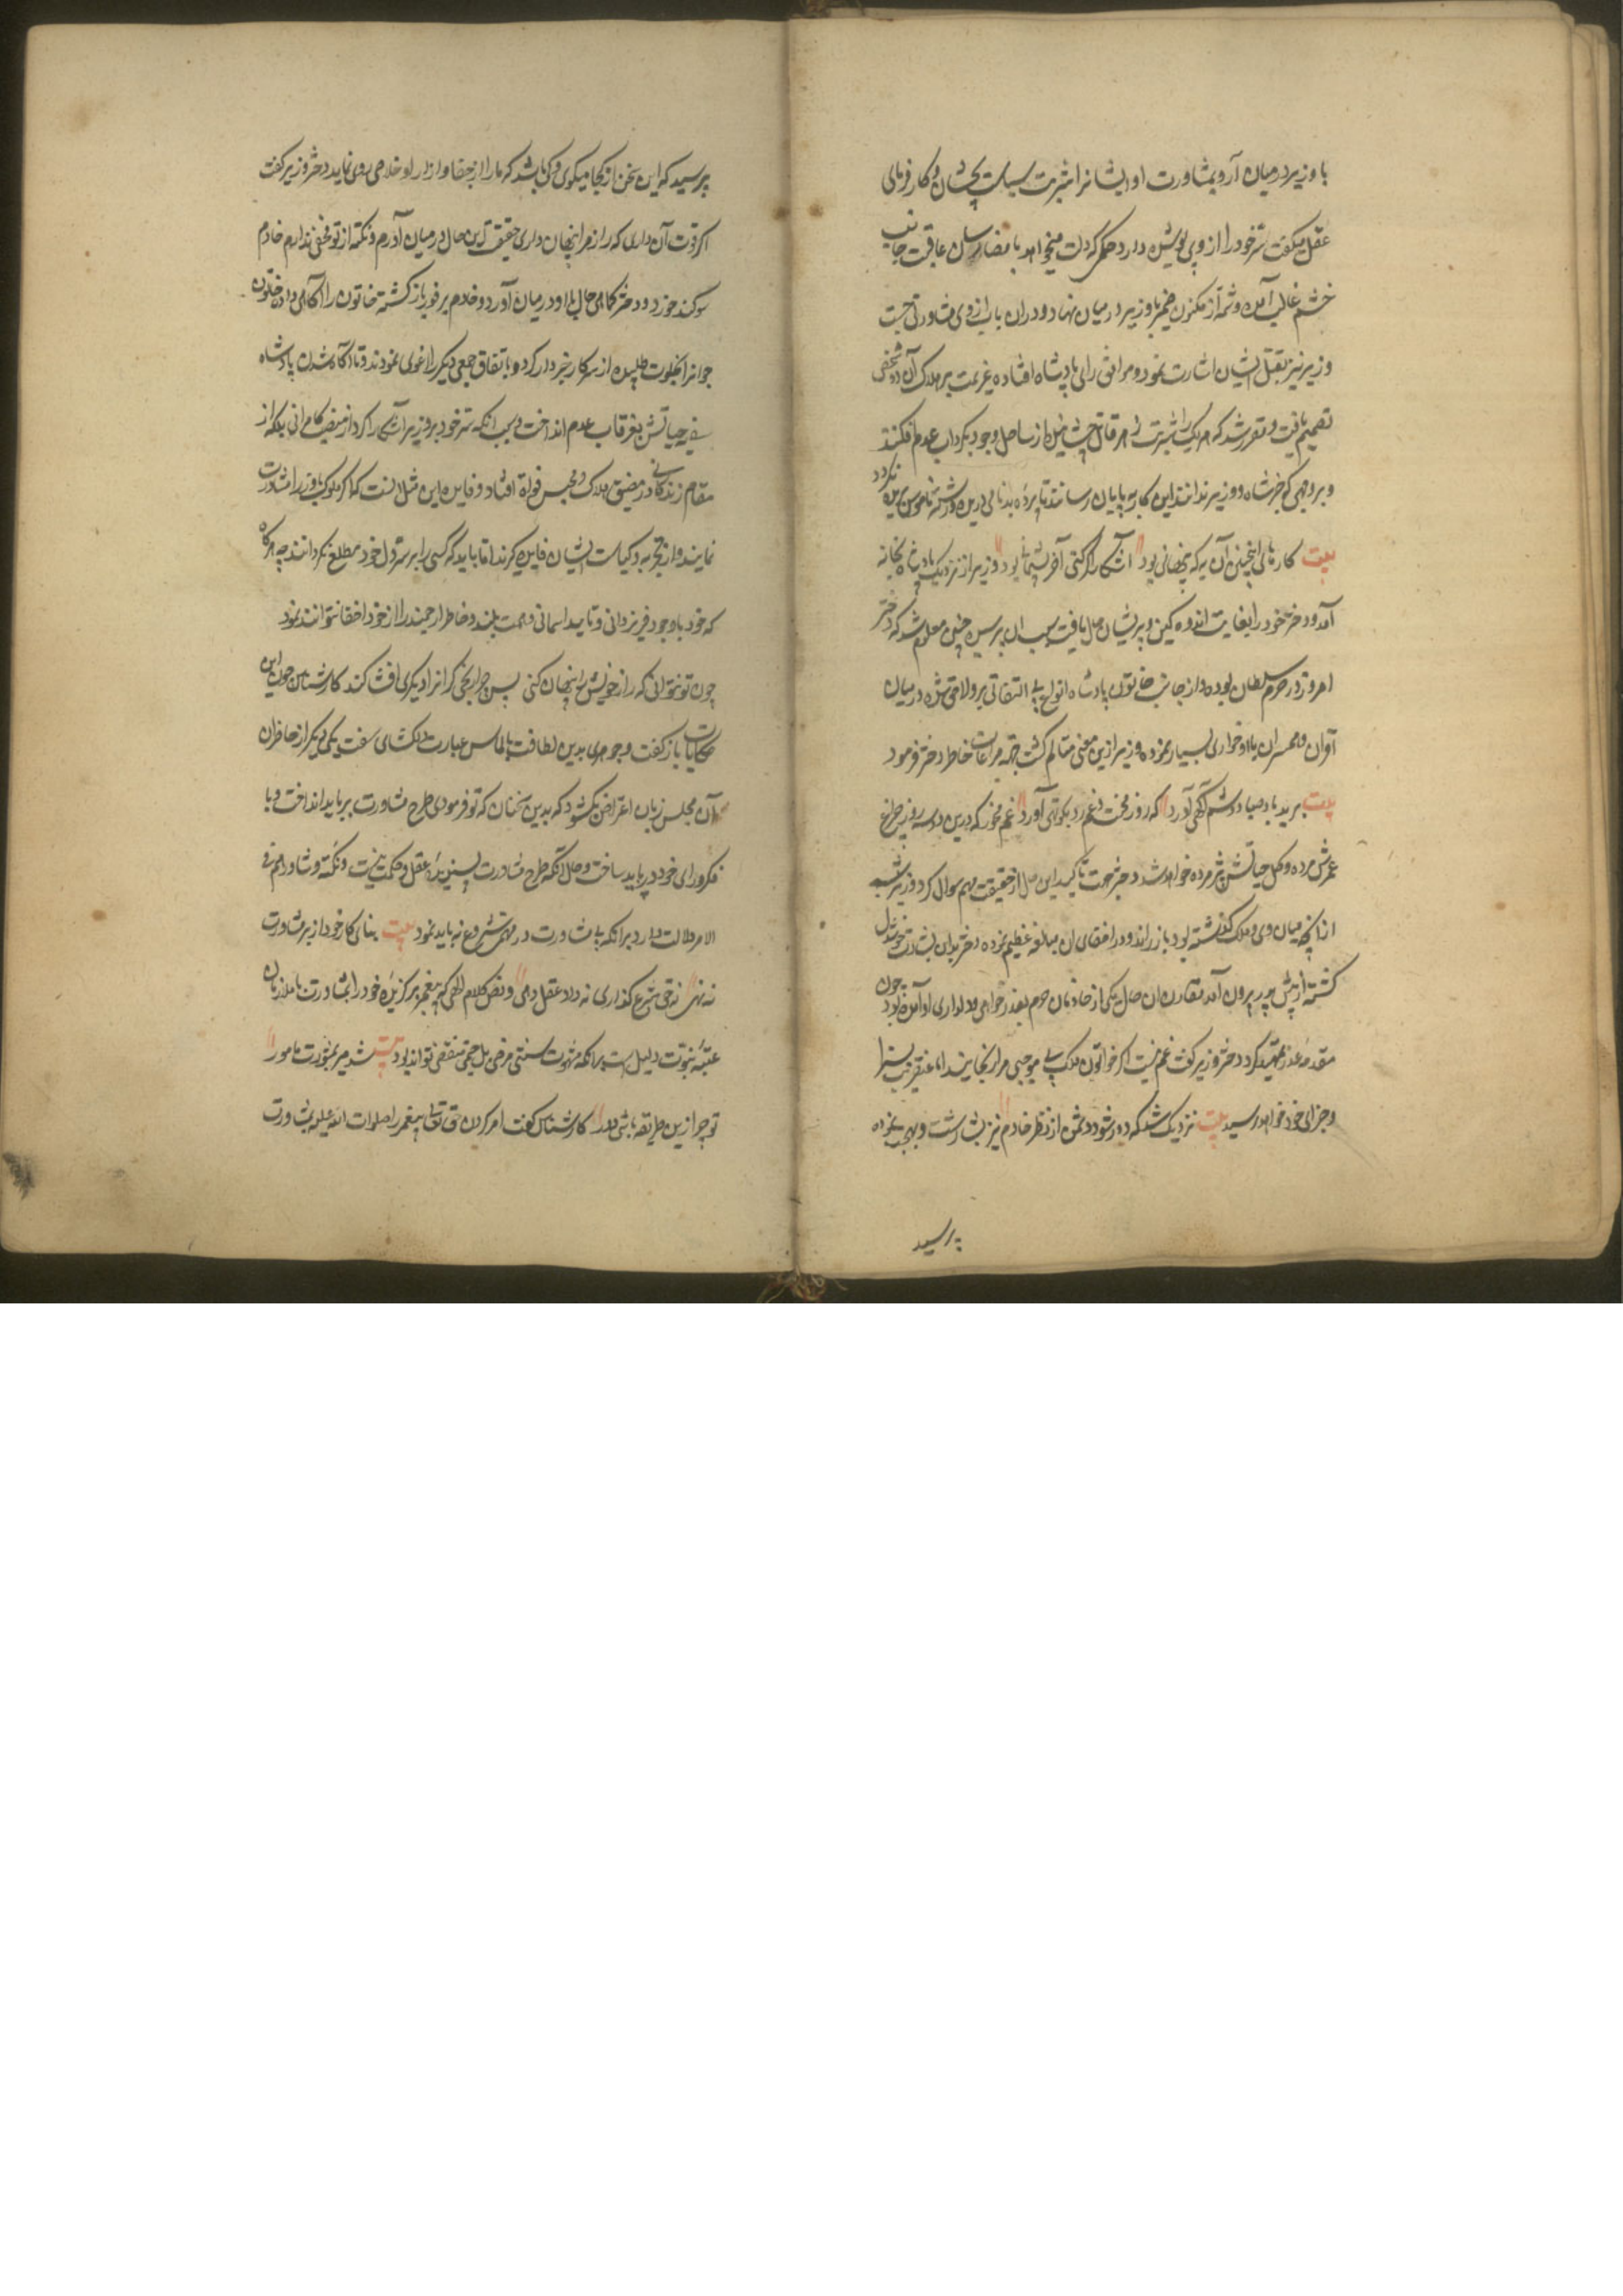 با وزیر در میان آر و بمشاورت او ایشانرا شربت سیاست بچشان و کارفرمای
عقل میگفت سّر خود را از وی پوشیده دار و حکمی که دلت میخواهد بامضا رسان عاقبت جانب
خشم غالب آمده وشمّه از مکنون ضمیر با وزیر در میان نهاد و در آن باب از وی مشاورتی جست
وزیر نیز بقتل ایشان اشارت نمود و موافق رای پادشاه افتاده عزیمت بر هلاک آن دو شخص
تصمیم یافت و مقرر شد که هر یک را شربت زهر قاتل چشانیده از ساحل وجود بگرداب عدم افکنند
و بر وجهی که جز شاه و وزیر ندانند این کار به پایان رسانند تا پرده بدنامی دریده و رشته ناموس بریده نگردد
بیت کارهائی اینچنین آن به که پنهانی بود آشکارا گر کنی آخر پشیمانی بود وزیر از نزدیک پادشاه بخانه
آمد و دختر خود را بغایت اندوهگین و پریشان حال یافت سبب آن پرسید چنین معلوم شد که دختر
امروز در حرم سلطان بوده و از جانب خاتون پادشاه انواع بی التفاتی برو لاحق شده در میان
اقران و همسران با او خواری بسیار نموده وزیر ازین معنی متالم گشت جهة مراعات خاطر دختر فرمود
بیت برید باد صبا دوشم آگهی آورد که روز محنت و غم رو بکوتهی آورد غم مخور که درین دو سه روز چراغ
عمرش مرده و گل حیاتش پژمرده خواهد شد دختر جهت تاکید این حال از حقیقت مهم سوال کرد وزیر شمه
از آنچه میان وی و ملک گذشته بود باز راند و در اخفای آن مبالغه عظیم نموده دختر بدان بشارت خوشدل
گشته از پیش پدر بیرون آمد مقارن آن حال یکی از خادمان حرم بعذر خواهی و دلداری او آمده بود چون
مقدمه عذر تمهید کرد دختر وزیر گفت غم نیست اگر خواتون ملک بی موجبی مرا رنجانیده اما عنقریب بسزا
و جزای خود خواهد رسید بیت نزدیک شد که دور شود دشمن از نظر خادم نیز بشاشت و بهجت نموده
پرسید
پرسید که این سخن از کجا میگوی و کی باشد که ما را از جفا و آزار او خلاصی روی نماید دختر وزیر گفت
اگر قوت آن داری که راز مرا پنهان داری حقیقت این حال در میان آرم و نکته از تو مخفی ندارم خادم
سوکند خورد و دختر کماهی حال با او در میان آورد و خادم بر فور باز گشته خاتون را آگاهی داد و خاتون
جوانرا بخلوت طلبیده از سر کار خبردار کرد و باتفاق جمعی دیگر را اغوی نمودند و تا آگاه شدن پادشاه
سفینه حیاتش بغرقاب عدم انداخت و بسبب انکه سّر خود بر وزیر آشکارا کرد از منصب کامرانی بلکه از
مقام زندگانی در مضیق هلاک و محبس فوات افتاد و فایده این مثل آنست که اگر ملوک با وزرا مشاورت
نمایند و از تجربه و کیاست ایشان فایده گیرند اما باید که کسی را بر سّر دل خود مطلع نگردانند چه هرگاه
که خود با وجود فّر یزدانی و تایید اسمانی و همت بلند و خاطر ارجمند راز خود اخفا نتوانند نمود
چون تو نتوانی که راز خویش را پنهان کنی پس چرا رنجی گر آنرا دیگری افشا کند کارشناس چون این
حکایات باز گفت و جوهری بدین لطافت بالماس عبارت دلگشای سفت یکی دیگر از حاضران
آن مجلس زبان اعتراض بگشود که بدین سخنان که تو فرمودی طرح مشاورت بر باید انداخت و با
فکر و رای خود در باید ساخت و حال آنکه طرح مشاورت پسندیده عقل و حکمت نیست و نکته وشاورهم فی
الامر دلالت دارد بر انکه بی مشاورت در مهمی شروع نباید نمود بیت بنای کار خود از بر مشاورت
نه نهی نه حق شرع گذاری نه داد عقل دهی و نص کلام الهی که پیغمبر برگزیده خود را بمشاورت با ملازمان
عتبه نبوّت دلیل است بر انکه مشورت سنتی مرضی بل حتمی مقضی تواند بود بیت شد پیمبر بمشورت مامور
تو چرا ازین طریقه باشی دور کارشناس گفت امر کردن حق تعالی پیغمبر را صلوات الله علیه بمشاورت